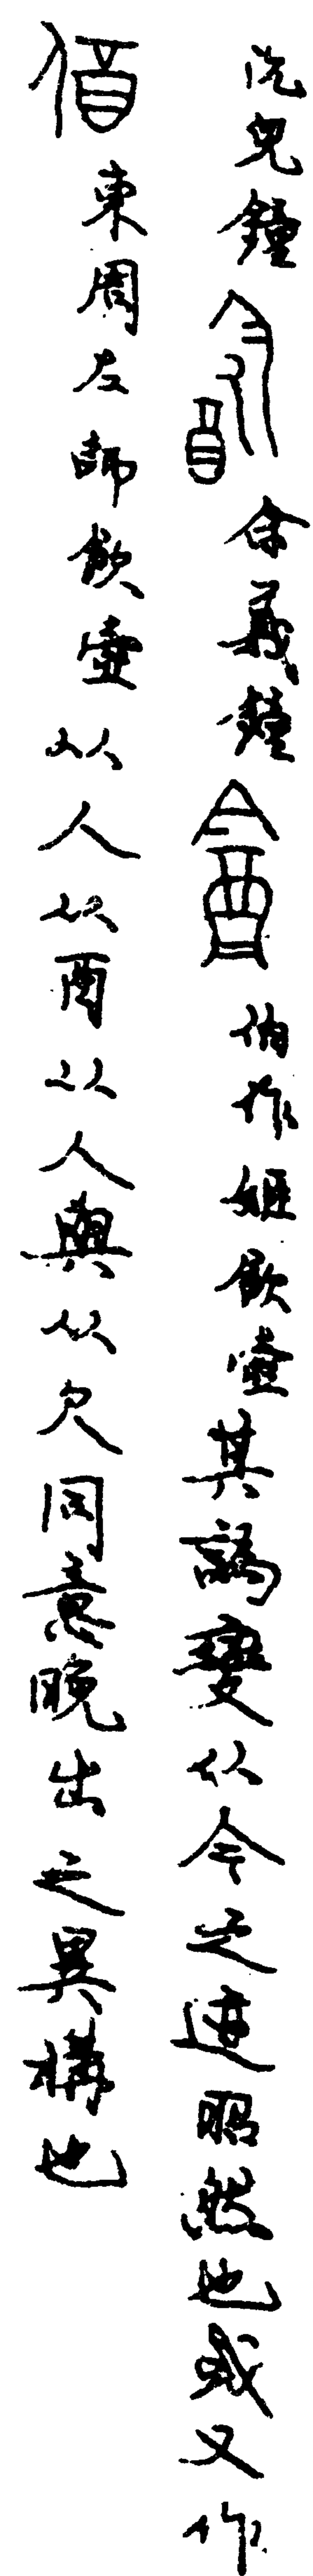 沇兒鐘余義鐘伯作姬飲壺其譌變从今之迹昭然也或又作
東周左師飲壺从人从酉从人與从欠同意晚出之異構也